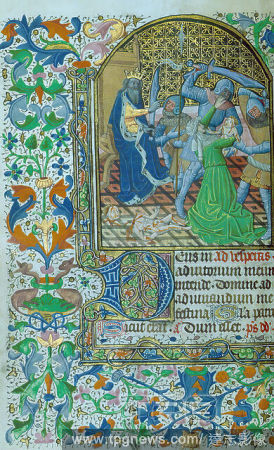 Deus in ad vesperas
adiutorium meum
intende. Domine ad
adiuuandum me
festina. Gl'a patri
Sicut erat. a Dum esset. ps
www.tpgnews.com / 達志影像